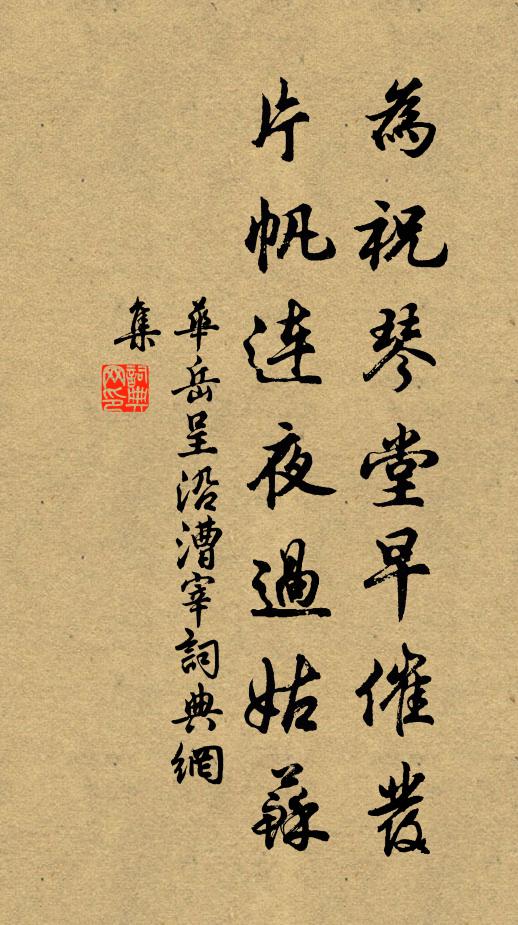 為祝琴堂早催發
片帆連夜過姑蘇
華岳呈沿漕宰詞典網
集
詞典網印